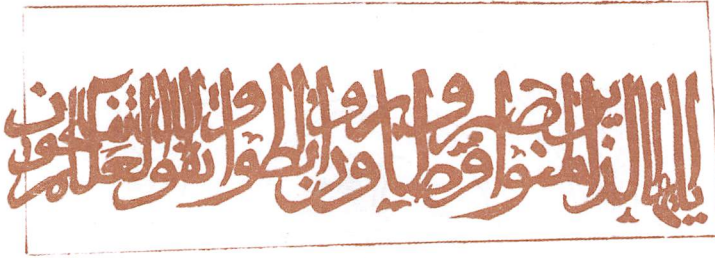 يايها الذين امنوا اصبروا وصابروا ورابطوا واتقوا الله لعلكم تفلحون